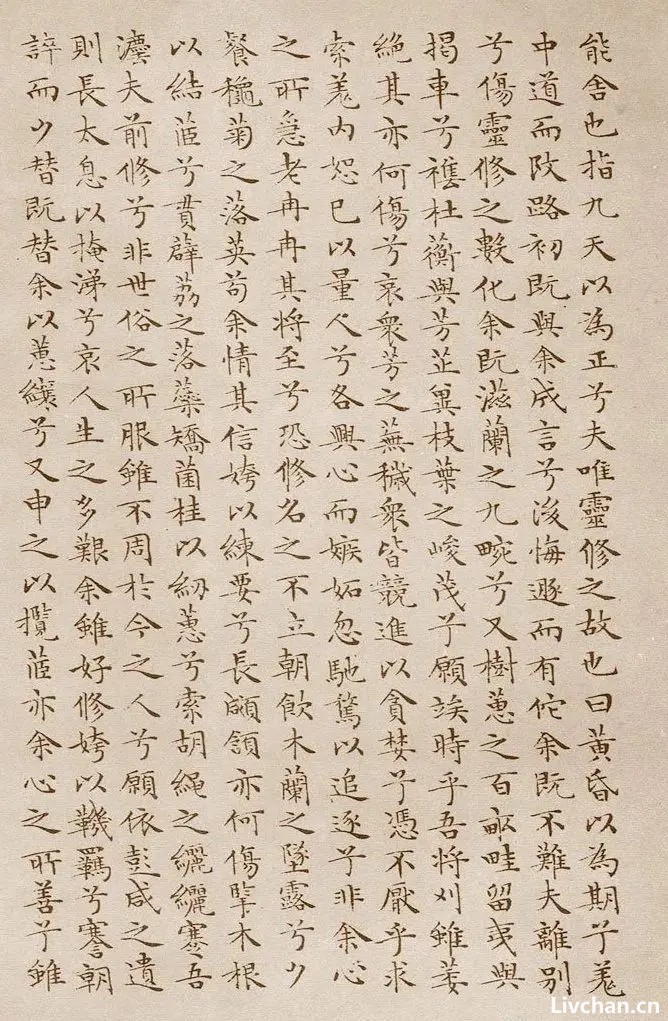 能舍也指九天以為正兮夫唯靈修之故也曰黃昏以為期兮羗
中道而改路初既與余成言兮後悔遯而有佗余既不難夫離別
兮傷靈修之數化余既滋蘭之九畹兮又樹蕙之百畝畦留夷與
揭車兮襍杜蘅與芳芷冀枝葉之峻茂兮願竢時乎吾將刈雖萎
絕其亦何傷兮哀衆芳之蕪穢衆皆競進以貪婪兮憑不厭乎求
索羗內恕己以量人兮各興心而嫉妬忽馳騖以追逐兮非余心
之所急老冉冉其將至兮恐修名之不立朝飲木蘭之墜露兮夕
餐龝菊之落英苟余情其信姱以練要兮長顑頷亦何傷擥木根
以結茝兮貫薜荔之落蘂矯菌桂以紉蕙兮索胡繩之纚纚謇吾
灋夫前修兮非世俗之所服雖不周於今之人兮願依彭咸之遺
則長太息以掩涕兮哀人生之多艱余雖好修姱以鞿羈兮謇朝
誶而夕替既替余以蕙纕兮又申之以攬茝亦余心之所善兮雖
Livchan.cn